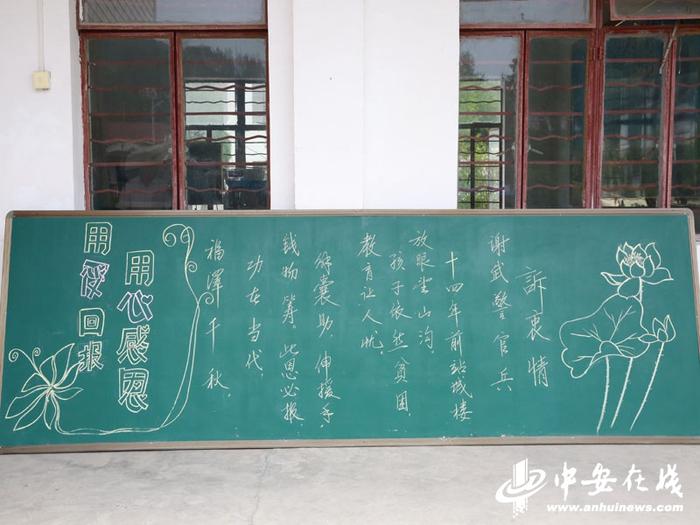 訴衷情
谢武警官兵
十四年前站城楼
放眼望山沟
孩子依然贫困,
教育让人忧.
解囊助,伸援手,
钱物筹.此恩必报,
功在当代,
福澤千秋.
用心感恩
用爱回报
中安在线
www.anhuinews.com